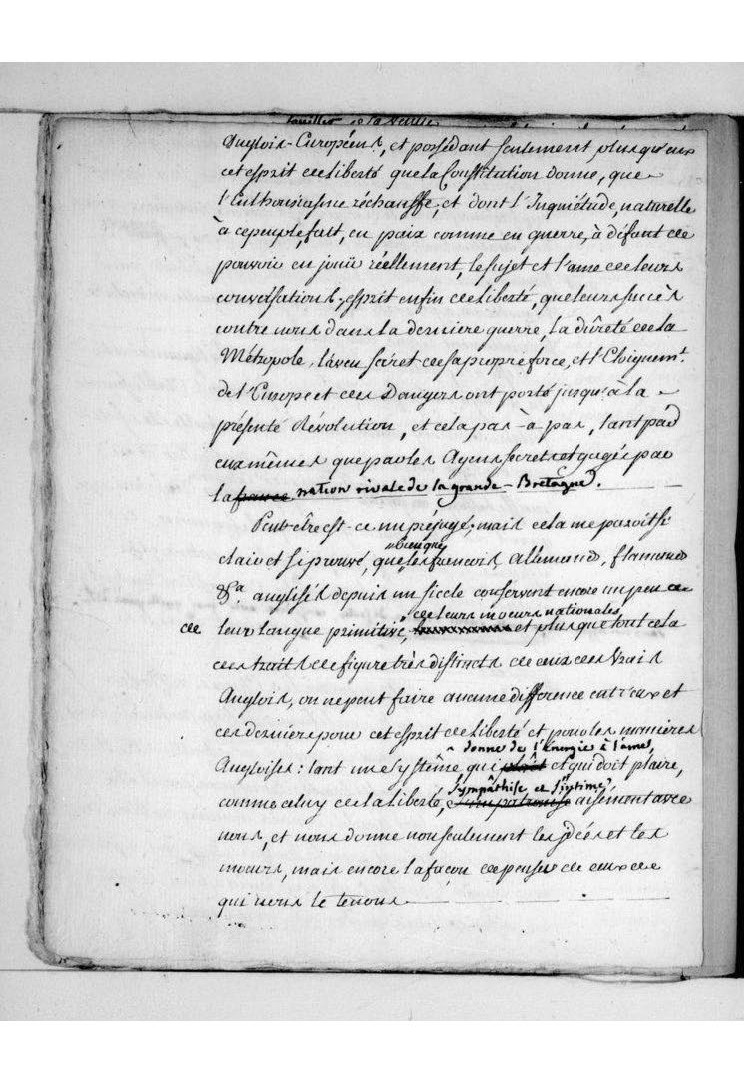 Anglois-Européens, et possédant seulement plus qu'eux
cet esprit de liberté que la Constitution donne, que
l'Enthousiasme réchauffe, et dont l'Inquiétude, naturelle
à ce peuple, fait, en paix comme en guerre, à défaut de
pouvoir en jouïr réellement, le sujet et l'ame de leurs
conversations; esprit enfin de liberté, que leurs succès
contre nous dans la derniere guerre, la dûreté de la
Métropole, l'aveu secret de sa propre force, et l'Eloignemt.
de l'Europe et des Dangers ont porté jusqu'à la
présente Révolution, et cela pas-à-pas, tant par
eux mêmes que par les Agens secrets et gagés par
la france nation rivale de la grande-Bretagne.
Peut-être est-ce un préjugé; mais cela me paroît si
clair et si prouvé, que, bienque
les françois, Allemands, flamands
&ca anglisés depuis un siecle conservent encore un peu de
de leurs moeurs nationales,
de leur langue primitive, et plus que tout cela
des traits de figure très distincts de ceux des vrais
Anglois, on ne peut faire aucune différence entr'eux et
ces derniers pour cet esprit de liberté et pour les manières
donne de l'énergie à l'âme,
Angloises: tant un systême qui plaît et qui doit plaire,
sympâthise et s'intime
comme celuy de la liberté, aisément avec
nous, et nous donne non seulement les idées et les
moeurs, mais encore la façon de penser de ceux de
qui nous le tenons.